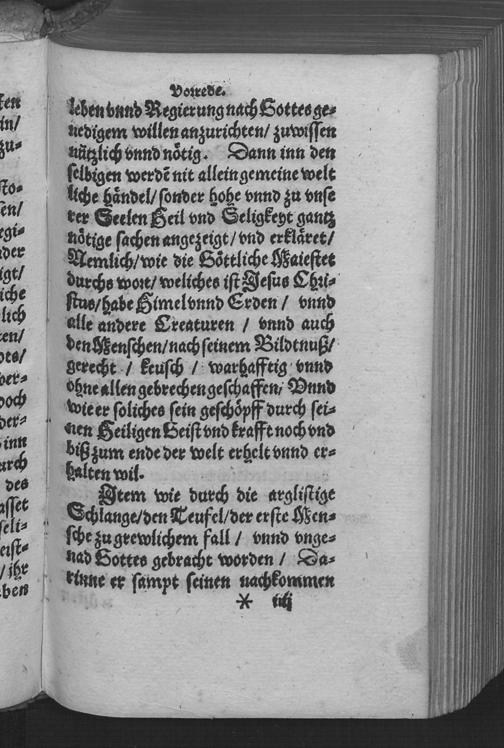 Vorrede.
leben vnnd Regierung nach Gottes ge-
nedigem willen anzurichten/ zuwissen
nützlich vnnd nötig. Dann inn den
selbigen werdē nit allein gemeine welt
liche händel/ sonder hohe vnnd zu vnse
rer Seelen Heil vnd Seligkeyt gantz
nötige sachen angezeigt/ vnd erkläret/
Nemlich/ wie die Göttliche Maiestet
durchs wort/ weliches ist Jesus Chri-
stus/ habe Himel vnnd Erden / vnnd
alle andere Creaturen / vnnd auch
den Menschen/ nach seinem Bildtnuß/
gerecht / keusch / warhafftig vnnd
ohne allen gebrechen geschaffen/ Vnnd
wie er soliches sein geschöpff durch sei-
nen Heiligen Geist vnd krafft noch vnd
biß zum ende der welt erhelt vnnd er-
halten wil.
Item wie durch die arglistige
Schlange/ den Teufel/ der erste Men-
sche zu grewlichem fall / vnnd vnge-
nad Gottes gebracht worden / Da-
rinne er sampt seinen nachkommen
* iiij
ten
in/
zu-
sto-
en/
egi-
der
igt/
iche
lich
en/
ots/
ver-
doch
der-
inn
urch
des
asset
seli-
eist-
/ ihr
ben